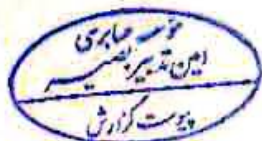 موسسه حسابرسی
امین تدبیر بصیر
پیوست گزارش